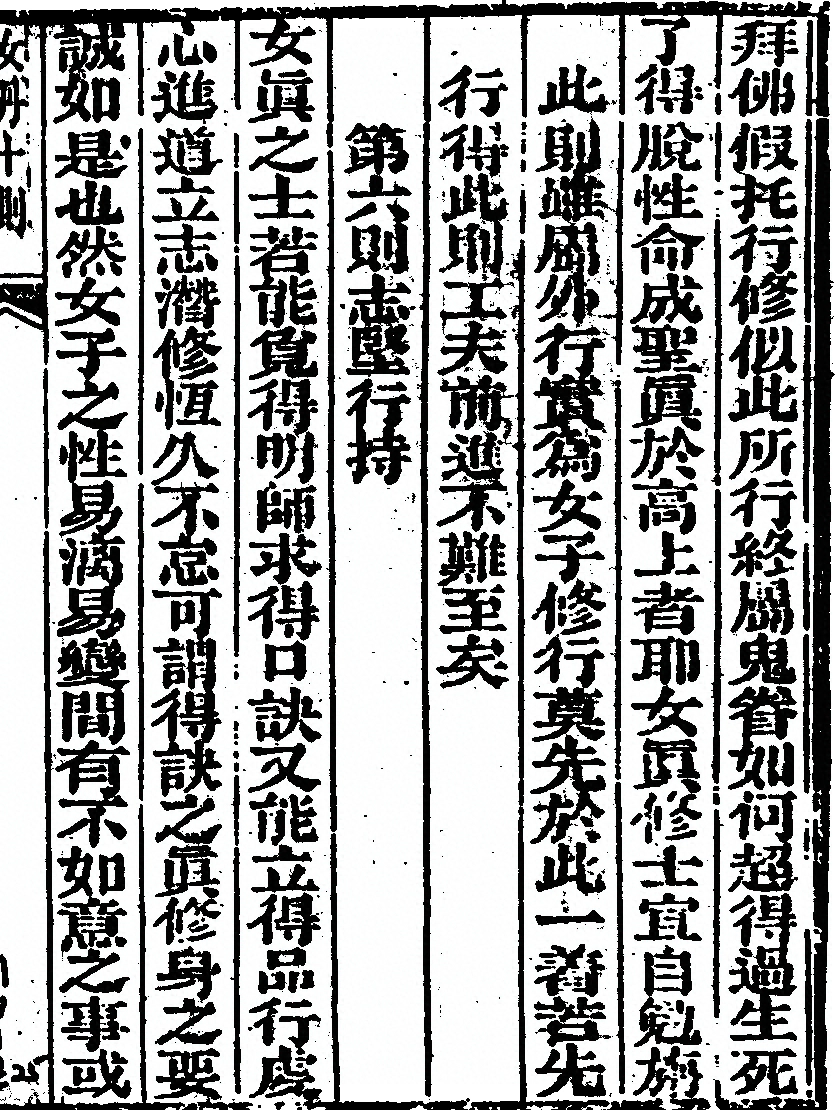 拜佛假托行修似此所行終屬鬼眷如何超得過生死
了得脫性命成聖眞於高上者耶女眞修士宜自勉旃
此則雖屬外行實爲女子修行莫先於此一著若先
行得此則工夫前進不難至矣
第六則志堅行持
女眞之士若能覓得明師求得口訣又能立得品行虔
心進道立志潛修恆久不怠可謂得訣之眞修身之要
誠如是也然女子之性易滿易變間有不如意之事或
女丹十則